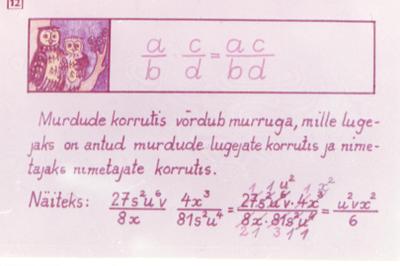 12
a/b · c/d = ac/bd
Murdude korrutis võrdub murruga, mille luge-
jaks on antud murdude lugejate korrutis ja nime-
tajaks nimetajate korrutis.
1 1 u² 1 x²
Näiteks: 27s²u⁶v/8x 4x³/81s²u⁴ = 27s²u⁶v·4x³/8x·81s²u⁴ = u²vx²/6
2 1 3 1 1